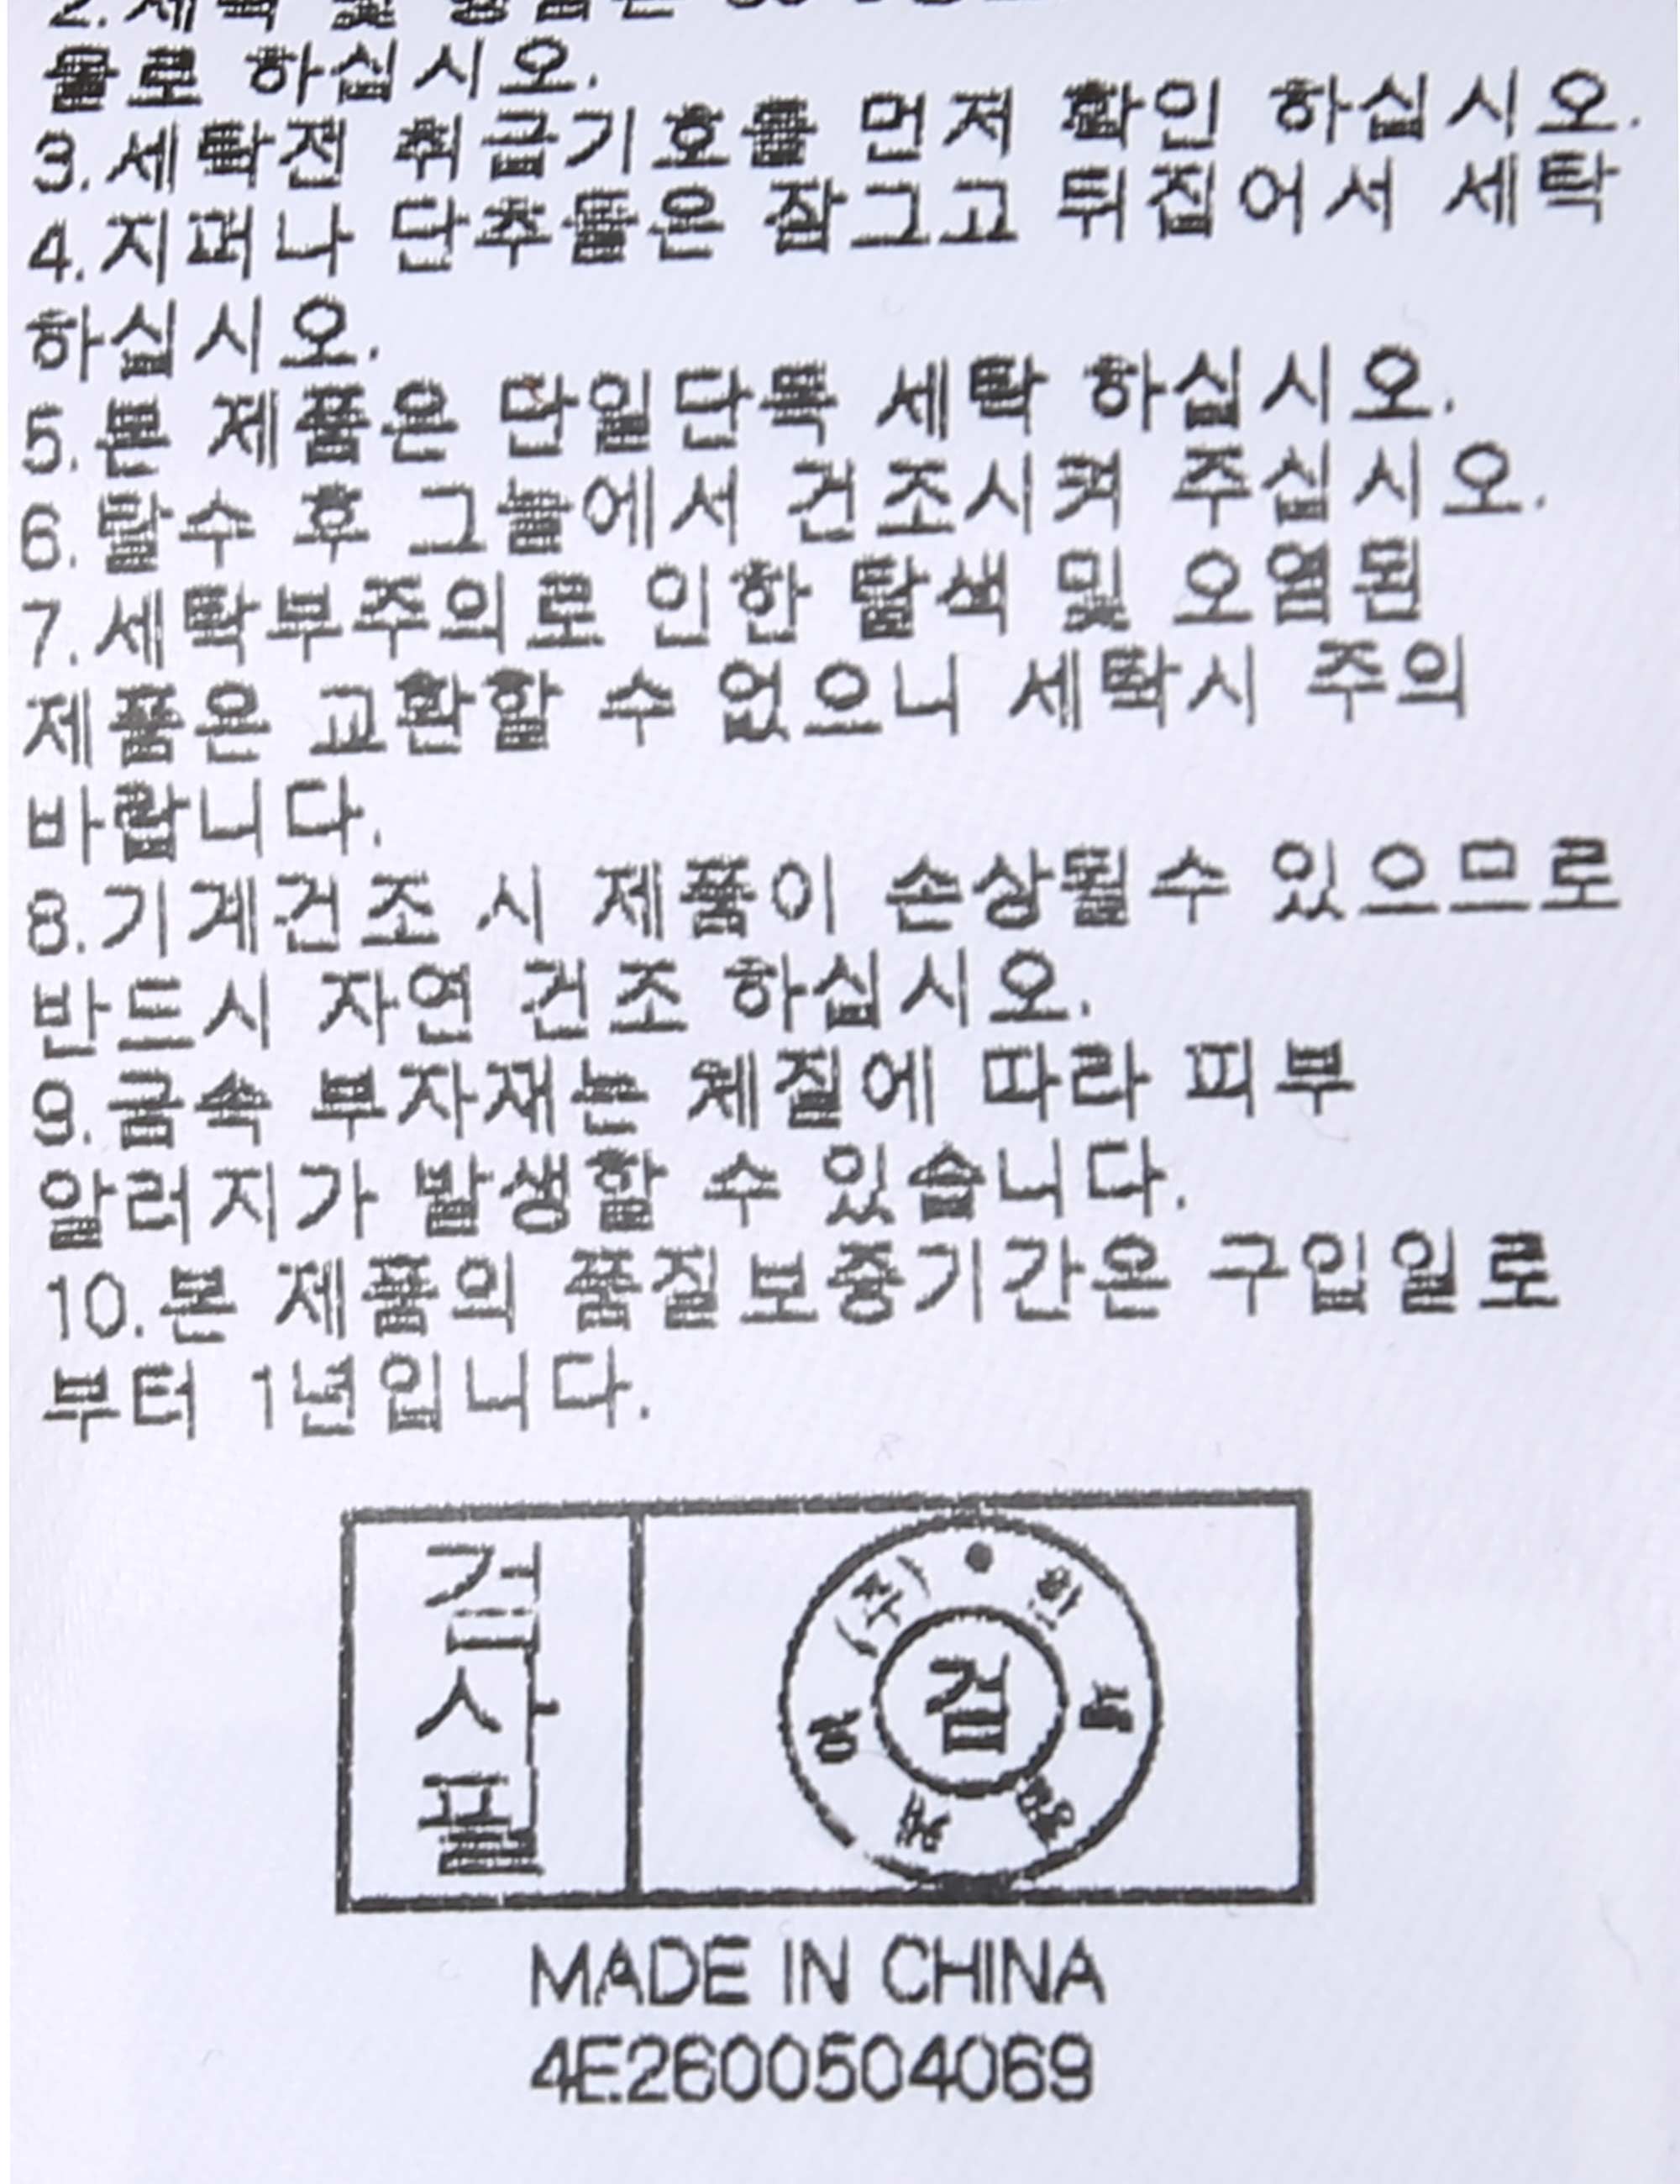 물로 하십시오.
3.세탁전 취급기호를 먼저 확인 하십시오.
4.지퍼나 단추들은 잠그고 뒤집어서 세탁
하십시오.
5.본 제품은 단일단독 세탁 하십시오.
6.탈수 후 그늘에서 건조시켜 주십시오.
7.세탁부주의로 인한 탈색 및 오염된
제품은 교환할 수 없으니 세탁시 주의
바랍니다.
8.기계건조 시 제품이 손상될수 있으므로
반드시 자연 건조 하십시오.
9.금속 부자재는 체질에 따라 피부
알러지가 발생할 수 있습니다.
10.본 제품의 품질보증기간은 구입일로
부터 1년입니다.
검사필
(주)
검
MADE IN CHINA
4E2600504069